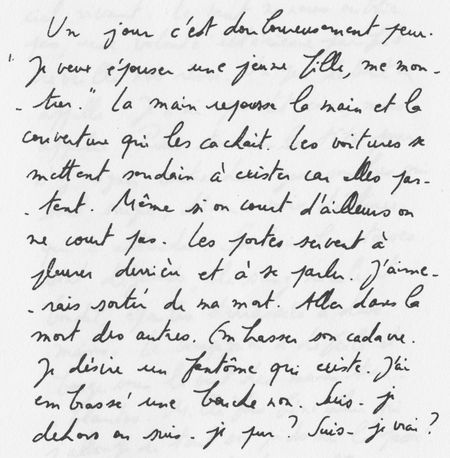 Un jour c'est douloureusement peur.
"Je veux épouser une jeune fille, me mon-
-trer." La main repousse la main et la
couverture qui les cachait. Les voitures se
mettent soudain à exister car elles par-
-tent. Même si on court d'ailleurs on
ne court pas. Les portes servent à
pleurer derrière et à se parler. J'aime-
-rais sortir de ma mort. Aller dans la
mort des autres. Embrasser son cadavre.
Je désire un fantôme qui existe. J'ai
embrassé une bouche non. Suis-je
dehors ou suis-je pur? Suis-je vrai?